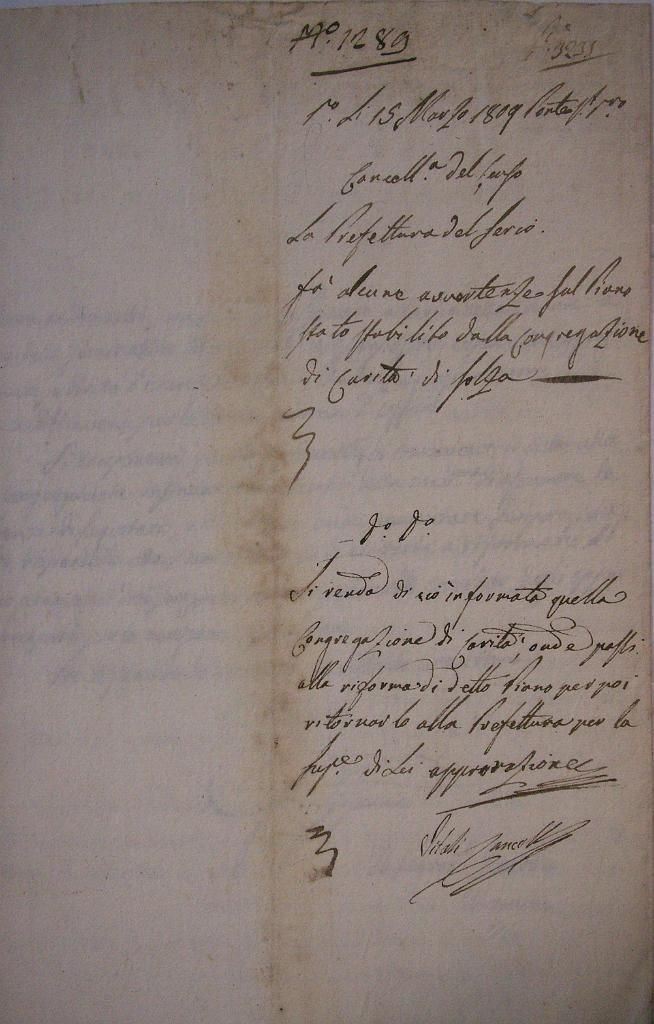 N.º 1289
li 15 Marzo 1809 Ponte S. P.ro
Concell.a del
La Prefettura del Serio.
fa alcune avvertenze sul Piano
stato stabilito dalla Congregazione
di Carità di Solza
d.º d.º
Si renda di ciò informata quella
Congregazione di Carità, onde passi
alla riforma di detto Piano per poi
ritornarlo alla Prefettura per la
Sup.e di Lei approvazione
Vitali Cancell